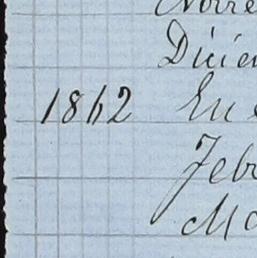 Novie
Dicie
1862 Ene
Feb
Ma